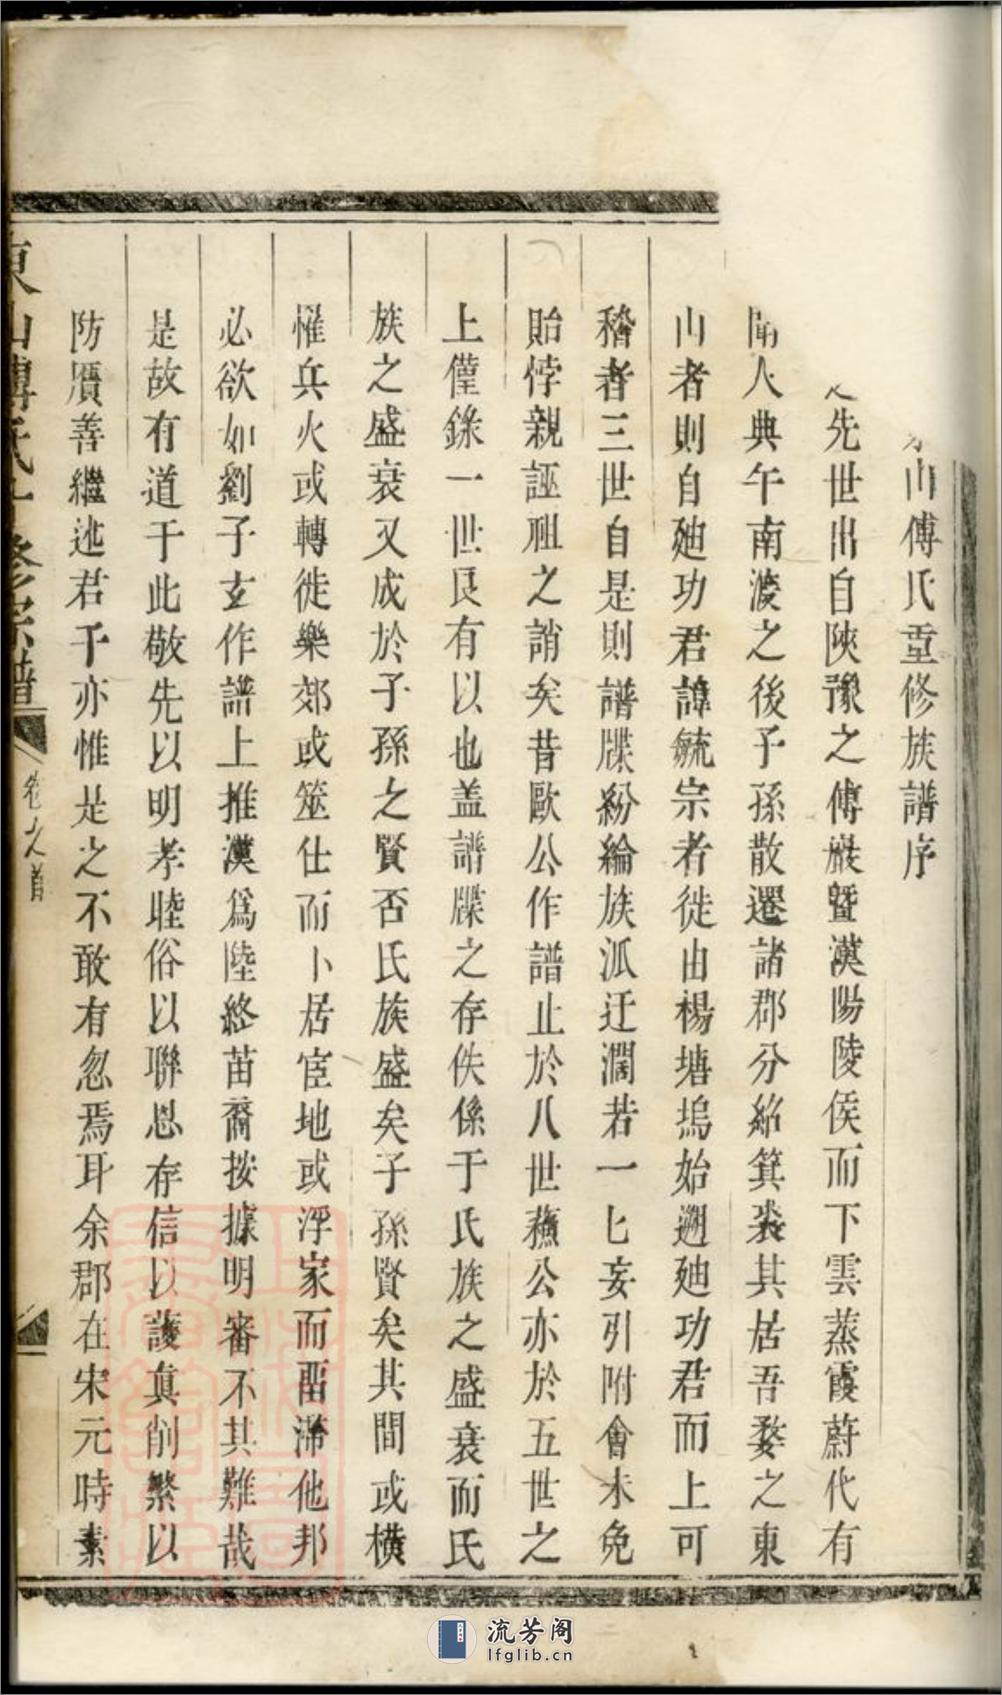 山傅氏重修族譜序
先世出自陝豫之傅巖暨漢陽陵侯而下雲蒸霞蔚代有
聞人典午南渡之後子孫散遷諸郡分紹箕裘其居吾婺之東
山者則自廸功君諱毓宗者徙由楊塘塢始遡廸功君而上可
稽者三世自是則譜牒紛綸族派迂濶若一匕妄引附會未免
貽悖親誣祖之誚矣昔歐公作譜止於八世蘓公亦於五世之
上僅錄一世良有以也盖譜牒之存佚係于氏族之盛衰而氏
族之盛衰又成於子孫之賢否氏族盛矣子孫賢矣其間或橫
惟兵火或轉徙樂郊或筮仕而卜居宦地或浮家而畱滯他邦
必欲如劉子玄作譜上推漢爲陸終苗裔按據明審不其難哉
是故有道于此敬先以明孝睦俗以聯恩存信以護真削繁以
防贋善繼述君子亦惟是之不敢有忽焉耳余郡在宋元時素
東山傅氏七修宗譜
卷之首
流芳阁
lfglib.cn